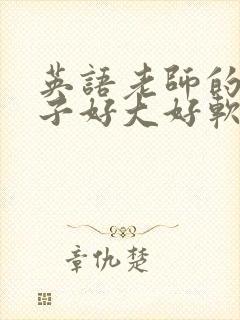 英語老師的
子好大好軟
章仇楚